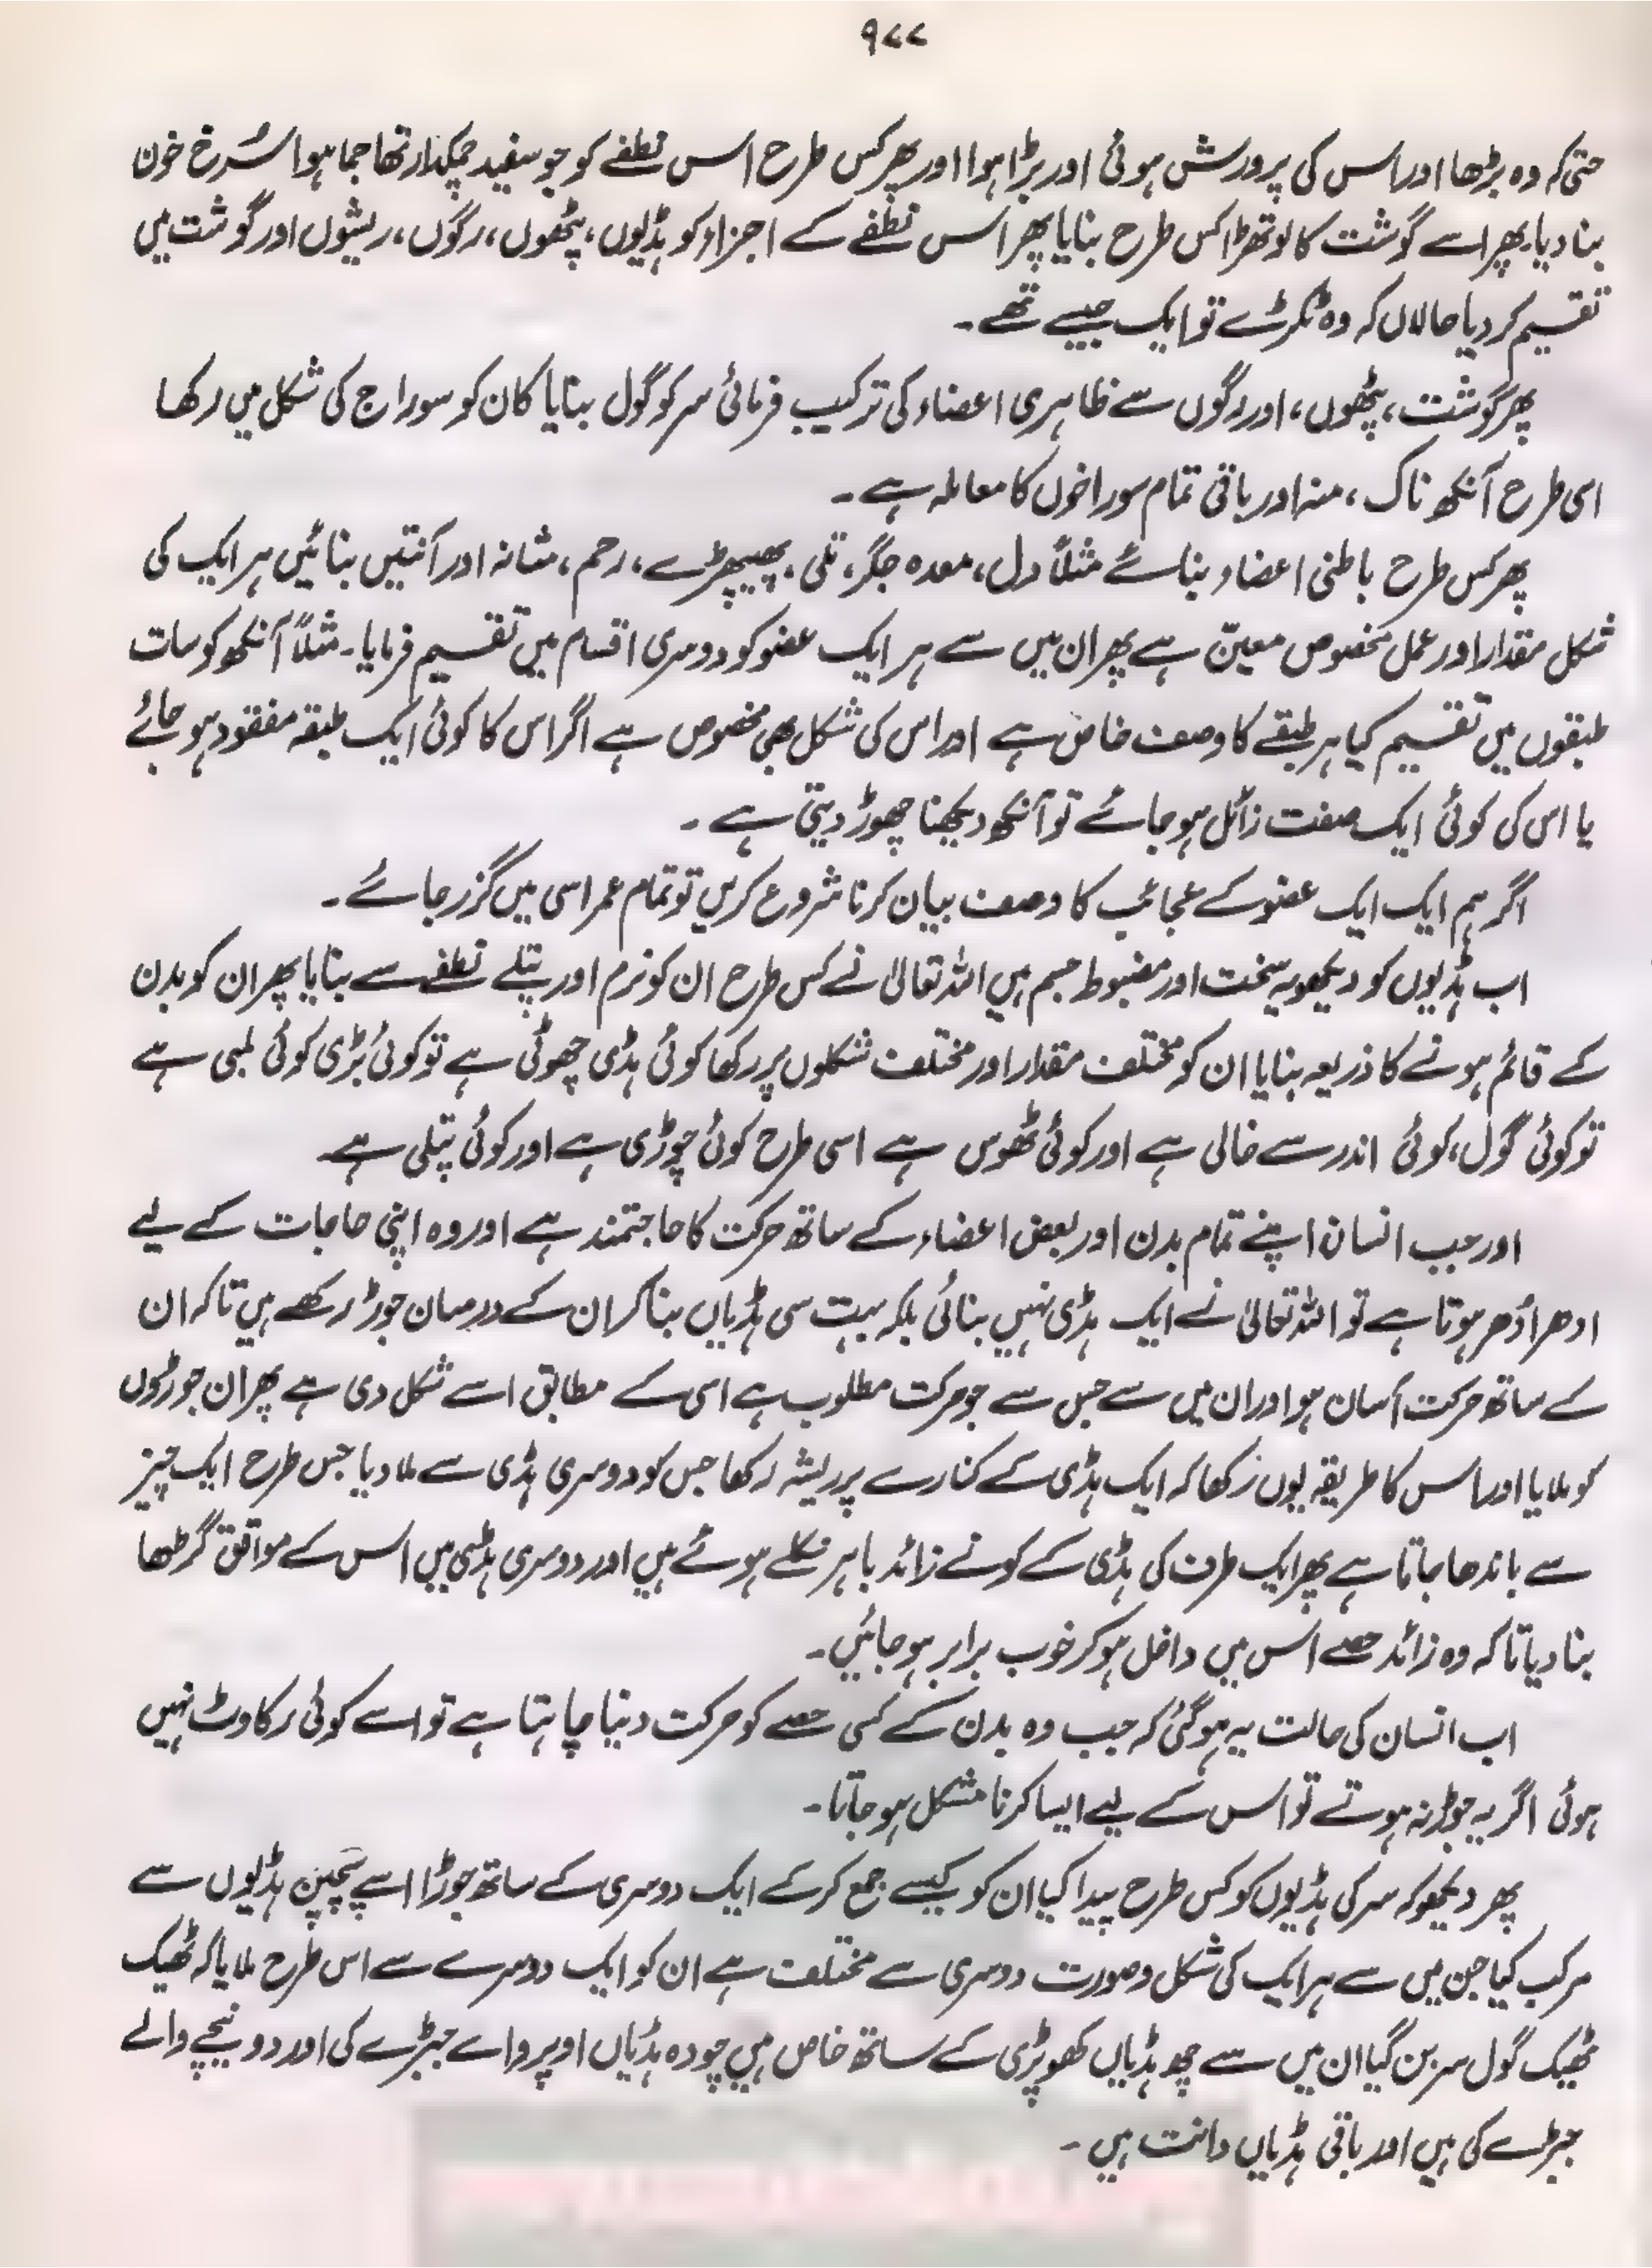 ۹۷۷
حتی کہ وہ بڑھا اور اس کی پرورش ہوئی اور بڑا ہوا اور پھر کس طرح اس نطفے کو جو سفید چمکدار تھا جما ہوا سُرخ خون
بنا دیا۔ پھر اسے گوشت کا لوتھڑا کس طرح بنایا پھر اس نطفے کے اجزاء کو ہڈیوں، پٹھوں، رگوں، ریشوں اور گوشت میں
تقسیم کر دیا حالاں کہ وہ ٹکڑے تو ایک جیسے تھے۔
پھر گوشت، پٹھوں، اور رگوں سے ظاہری اعضاء کی ترکیب فرمائی سر کو گول بنایا کان کو سوراخ کی شکل میں رکھا
اسی طرح آنکھ ناک، منہ اور باقی تمام سوراخوں کا معاملہ ہے۔
پھر کس طرح باطنی اعضاء بنائے مثلاً دل، معدہ جگر، تلی، پھیپھڑے، رحم، مثانہ اور آنتیں بنائیں ہر ایک کی
شکل مقدار اور عمل مخصوص معیّن ہے پھر ان میں سے ہر ایک عضو کو دوسری اقسام میں تقسیم فرمایا۔ مثلاً آنکھ کو سات
طبقوں میں تقسیم کیا ہر طبقے کا وصف خاص ہے اور اس کی شکل بھی مخصوص ہے اگر اس کا کوئی ایک طبقہ مفقود ہو جائے
یا اس کی کوئی ایک صفت زائل ہو جائے تو آنکھ دیکھنا چھوڑ دیتی ہے۔
اگر ہم ایک ایک عضو کے عجائب کا وصف بیان کرنا شروع کریں تو تمام عمر اسی میں گزر جائے۔
اب ہڈیوں کو دیکھو یہ سخت اور مضبوط جسم ہیں اللہ تعالیٰ نے کس طرح ان کو نرم اور پتلے نطفے سے بنایا پھر ان کو بدن
کے قائم ہونے کا ذریعہ بنایا ان کو مختلف مقدار اور مختلف شکلوں پر رکھا کوئی ہڈی چھوٹی ہے تو کوئی بڑی کوئی لمبی ہے
تو کوئی گول، کوئی اندر سے خالی ہے اور کوئی ٹھوس ہے اسی طرح کوئی چوڑی ہے اور کوئی پتلی ہے۔
اور جب انسان اپنے تمام بدن اور بعض اعضاء کے ساتھ حرکت کا حاجتمند ہے اور وہ اپنی حاجات کے لیے
ادھر اُدھر ہوتا ہے تو اللہ تعالیٰ نے ایک ہڈی نہیں بنائی بلکہ بہت سی ہڈیاں بنا کر ان کے درمیان جوڑ رکھے ہیں تاکہ ان
کے ساتھ حرکت آسان ہو اور ان میں سے جس سے جو حرکت مطلوب ہے اسی کے مطابق اسے شکل دی ہے پھر ان جوڑوں
کو ملایا اور اس کا طریقہ یوں رکھا کہ ایک ہڈی کے کنارے پر ریشہ رکھا جس کو دوسری ہڈی سے ملا دیا جس طرح ایک چیز
سے باندھا جاتا ہے پھر ایک طرف کی ہڈی کے کونے زائد باہر نکلے ہوئے ہیں اور دوسری ہڈی میں اس کے موافق گڑھا
بنا دیا تاکہ وہ زائد حصے اس میں داخل ہو کر خوب برابر ہو جائیں۔
اب انسان کی حالت یہ ہو گئی کہ جب وہ بدن کے کسی حصے کو حرکت دینا چاہتا ہے تو اسے کوئی رکاوٹ نہیں
ہوتی اگر یہ جوڑ نہ ہوتے تو اس کے لیے ایسا کرنا مشکل ہو جاتا۔
پھر دیکھو کہ سر کی ہڈیوں کو کس طرح پیدا کیا ان کو کیسے جمع کر کے ایک دوسری کے ساتھ جوڑا اسے پچپن ہڈیوں سے
مرکب کیا جن میں سے ہر ایک کی شکل و صورت دوسری سے مختلف ہے ان کو ایک دوسرے سے اس طرح ملایا کہ ٹھیک
ٹھیک گول سر بن گیا ان میں سے چھ ہڈیاں کھوپڑی کے ساتھ خاص ہیں چودہ ہڈیاں اوپر والے جبڑے کی اور دو نیچے والے
جبڑے کی ہیں اور باقی ہڈیاں دانت ہیں۔